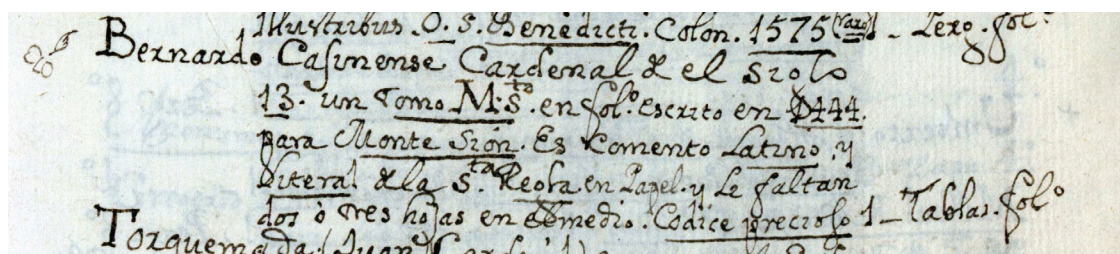 Illustribus. O. S. Benedicti. Colon. 1575 (raro) - Perg. folº
Bernardo Casinense Cardenal de el siglo
13. un tomo M:S.to en folº escrito en 1444.
para Monte Sion. Es Comento Latino, y
Literal de la S.ta Regla. en Papel. y Le faltan
dos ò tres hojas en el medio. Codice precioso 1 - Tablas. folº
Torquemada (Juan) Cardenal